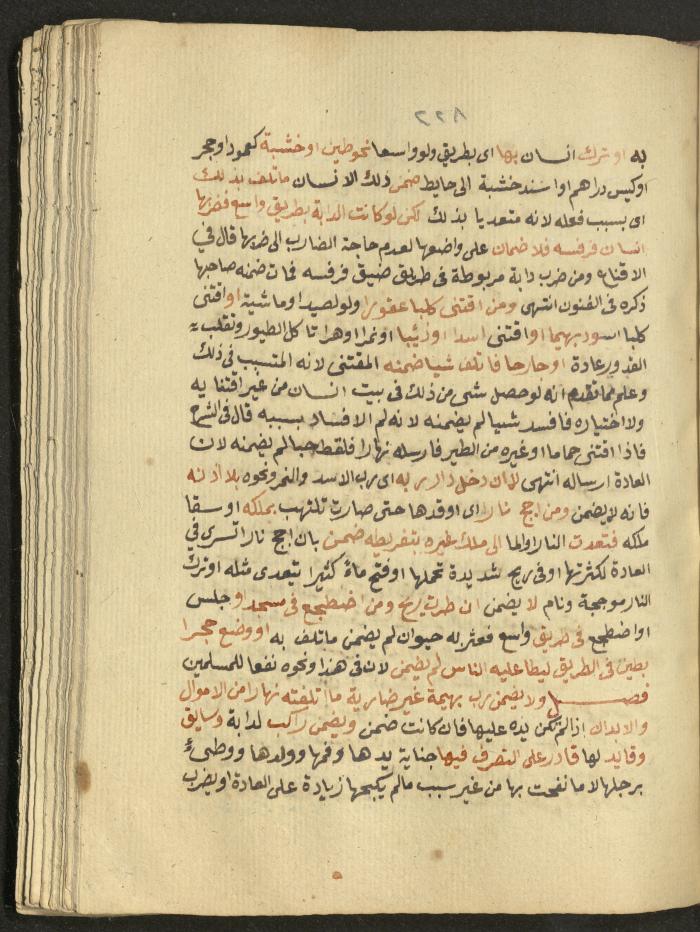 ٨٢٢
به او ترك انسان بها اى بطريق ولو واسعا نحو طين او خشبة كعمود او حجر
او كيس دراهم او اسند خشبة الى حايط ضمن ذلك الانسان ما تلف بذلك
اى بسبب فعله لانه متعديا بذلك لكن لو كانت الدابة بطريق واسع فضربها
انسان فرفسه فلا ضمان على واضعها لعدم حاجة الضارب الى ضربها قال في
الاقناع ومن ضرب دابة مربوطة فى طريق ضيق فرفسه فمات ضمنه صاحبها
ذكره فى الفنون انتهى ومن اقتنى كلبا عقورا ولو لصيد او ماشية او اقتنى
كلبا اسود بهيما او اقتنى اسدا او ذيبا او نمرا او هرا تاكل الطيور وتقلب
القدور عادة او جارحا فاتلف شيا ضمنه المقتنى لانه المتسبب فى ذلك
وعلم مما تقدم انه لو حصل شى من ذلك فى بيت انسان من غير اقتنايه
ولا اختياره فافسد شيا لم يضمنه لانه لم الافساد بسببه قال فى الشرح
فاذا اقتنى حماما او غيره من الطير فارسله نهارا فلقط حبا لم يضمنه لان
العادة ارساله انتهى لا ان دخل دار ربه اى رب الاسد والنمر ونحوه بلا اذنه
فانه لا يضمن ومن اجج نارا اى اوقدها حتى صارت تلتهب بملكه او سقا
ملكه فتعدت النار او الما الى ملك غيره بتفريطه ضمن بان اجج نارا تسرى في
العادة لكثرتها او فى ريح شديدة تحملها او فتح ماء كثيرا يتعدى مثله او ترك
النار موججة ونام لا يضمن ان طرت ريح ومن اضطجع فى مسجد او جلس
او اضطجع فى طريق واسع فعثر به حيوان لم يضمن ما تلف به او وضع حجرا
بطين فى الطريق ليطا عليه الناس لم يضمن لان فى هذا ونحوه نفعا للمسلمين
فصل ولا يضمن رب بهيمة غير ضارية ما اتلفته نهارا من الاموال
والابدان اذا لم تكن يده عليها فان كانت ضمن ويضمن راكب لدابة وسايق
وقايد لها قادر على التصرف فيها جناية يدها وفمها وولدها ووطىء
برجلها لا ما نفحت بها من غير سبب ما لم يكبحها زيادة على العادة او يضرب